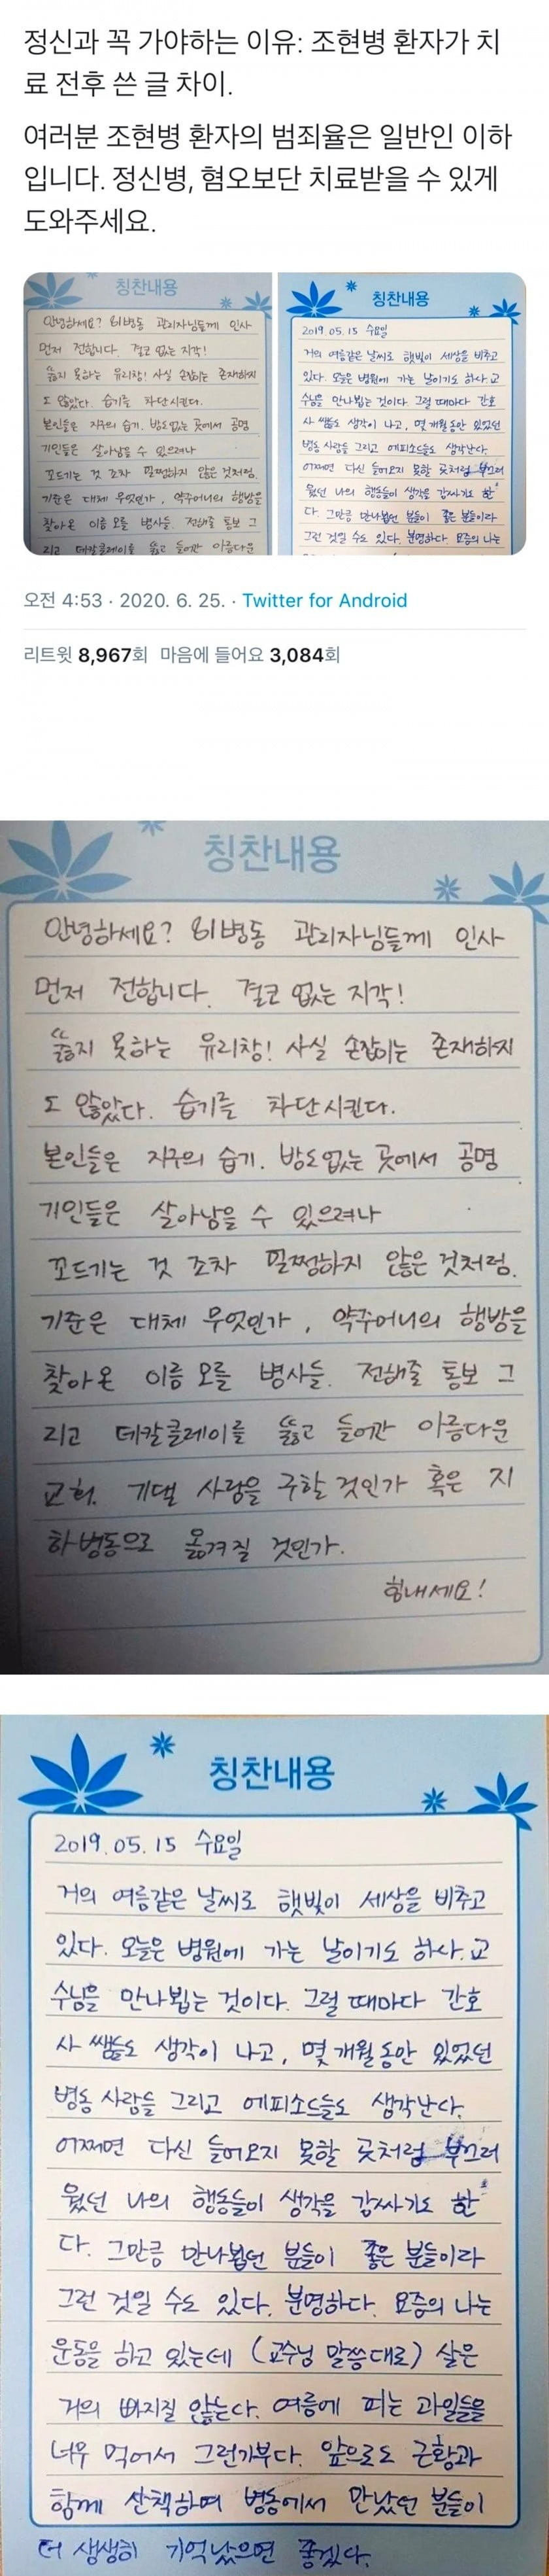 정신과 꼭 가야하는 이유: 조현병 환자가 치
료 전후 쓴 글 차이.
여러분 조현병 환자의 범죄율은 일반인 이하
입니다. 정신병, 혐오보단 치료받을 수 있게
도와주세요.
칭찬내용
안녕하세요? 81병동 관리자님들께 인사
먼저 전합니다. 결코 없는 지각!
뚫지 못하는 유리창! 사실 손잡이는 존재하지
도 않았다. 습기를 차단시킨다.
본인들은 지구의 습기. 방도없는 곳에서 공명
기인들은 살아남을 수 있으려나
꼬드기는 것 조차 멀쩡하지 않은 것처럼.
기준은 대체 무엇인가, 약주머니의 행방을
찾아온 이름 모를 병사들. 전해줄 통보 그
리고 데칼클레이를 뚫고 들어간 아름다운
칭찬내용
2019.05.15 수요일
거의 여름같은 날씨로 햇빛이 세상을 비추고
있다. 오늘은 병원에 가는 날이기도 하사. 교
수님을 만나뵙는 것이다. 그럴 때마다 간호
사 쌤들도 생각이 나고, 몇 개월동안 있었던
병동 사람들 그리고 에피소드들도 생각난다.
어쩌면 다신 들어오지 못할 곳처럼 부끄러
웠던 나의 행동들이 생각을 감싸기도 한
다. 그만큼 만나뵙던 분들이 좋은 분들이라
그런 것일 수도 있다. 분명하다. 요즘의 나는
오전 4:53 · 2020. 6. 25. · Twitter for Android
리트윗 8,967회 마음에 들어요 3,084회
칭찬내용
안녕하세요? 81병동 관리자님들께 인사
먼저 전합니다. 결코 없는 지각!
뚫지 못하는 유리창! 사실 손잡이는 존재하지
도 않았다. 습기를 차단시킨다.
본인들은 지구의 습기. 방도없는 곳에서 공명
기인들은 살아남을 수 있으려나
꼬드기는 것 조차 멀쩡하지 않은 것처럼.
기준은 대체 무엇인가, 약주머니의 행방을
찾아온 이름 모를 병사들. 전해줄 통보 그
리고 데칼클레이를 뚫고 들어간 아름다운
교회. 기댈 사람을 구할 것인가 혹은 지
하병동으로 옮겨질 것인가.
힘내세요!
칭찬내용
2019.05.15 수요일
거의 여름같은 날씨로 햇빛이 세상을 비추고
있다. 오늘은 병원에 가는 날이기도 하사. 교
수님을 만나뵙는 것이다. 그럴 때마다 간호
사 쌤들도 생각이 나고, 몇 개월동안 있었던
병동 사람들 그리고 에피소드들도 생각난다.
어쩌면 다신 들어오지 못할 곳처럼 부끄러
웠던 나의 행동들이 생각을 감싸기도 한
다. 그만큼 만나뵙던 분들이 좋은 분들이라
그런 것일 수도 있다. 분명하다. 요즘의 나는
운동을 하고 있는데 (교수님 말씀대로) 살은
거의 빠지질 않는다. 여름에 피는 과일들을
너무 먹어서 그런가부다. 앞으로도 근황과
함께 산책하며 병동에서 만났던 분들이
더 생생히 기억났으면 좋겠다.